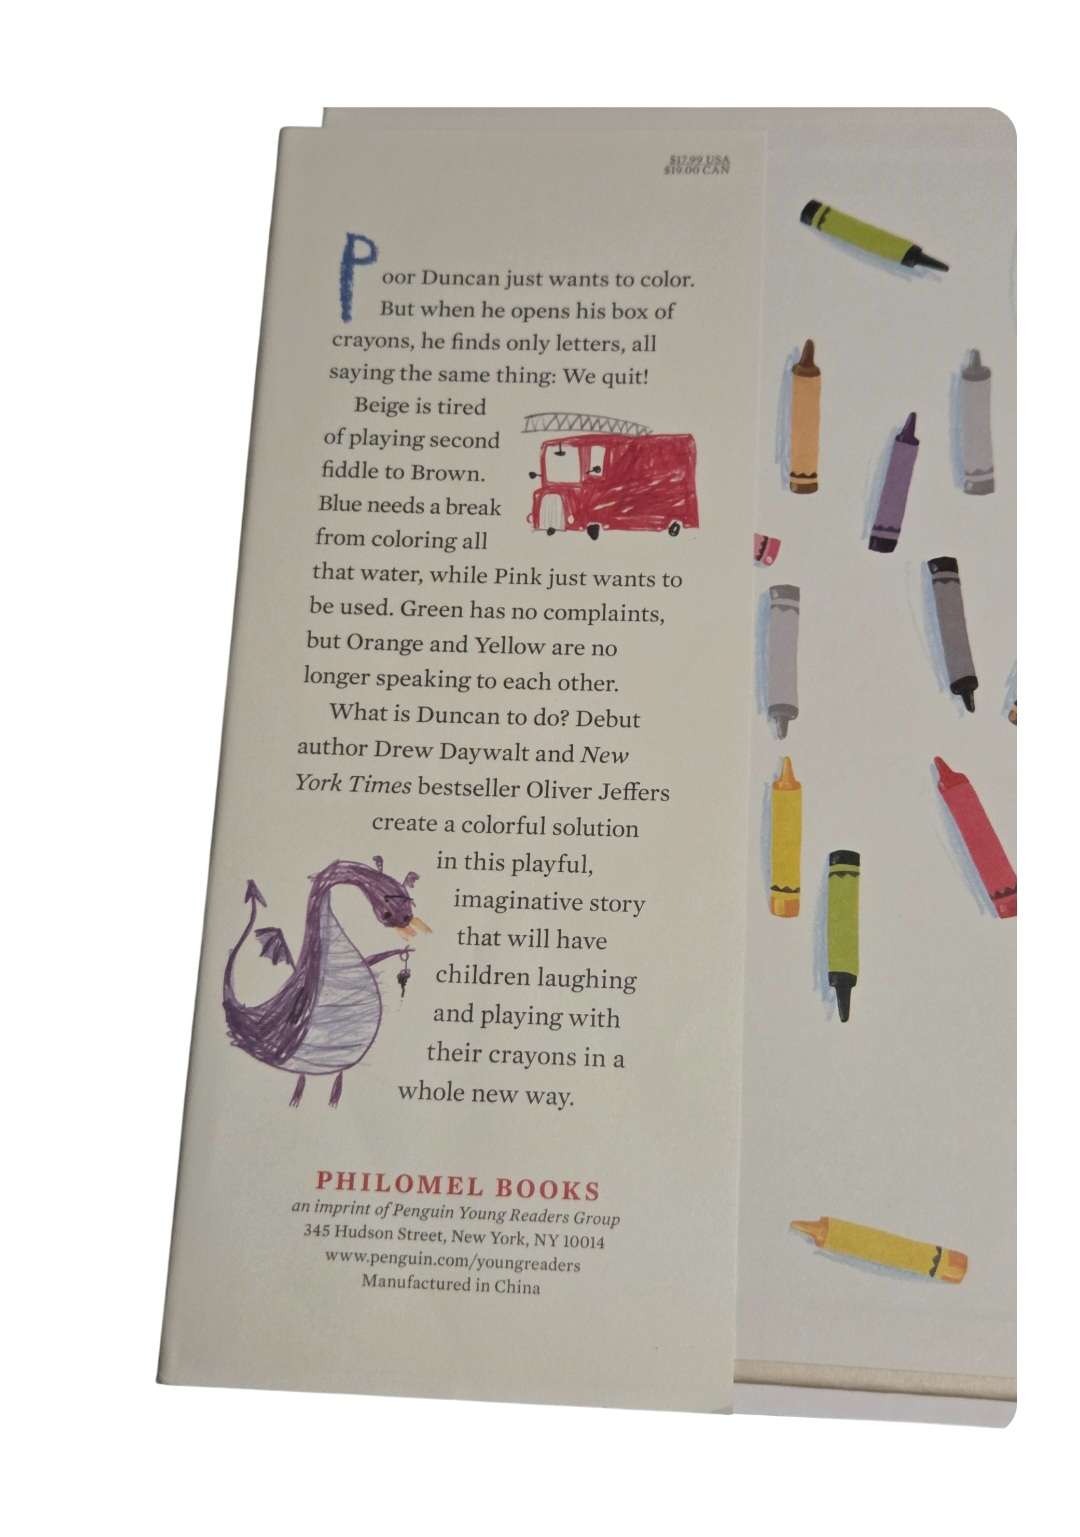 $17.99 USA
$19.00 CAN
Poor Duncan just wants to color.
But when he opens his box of
crayons, he finds only letters, all
saying the same thing: We quit!
Beige is tired
of playing second
fiddle to Brown.
Blue needs a break
from coloring all
that water, while Pink just wants to
be used. Green has no complaints,
but Orange and Yellow are no
longer speaking to each other.
What is Duncan to do? Debut
author Drew Daywalt and New
York Times bestseller Oliver Jeffers
create a colorful solution
in this playful,
imaginative story
that will have
children laughing
and playing with
their crayons in a
whole new way.
PHILOMEL BOOKS
an imprint of Penguin Young Readers Group
345 Hudson Street, New York, NY 10014
www.penguin.com/youngreaders
Manufactured in China